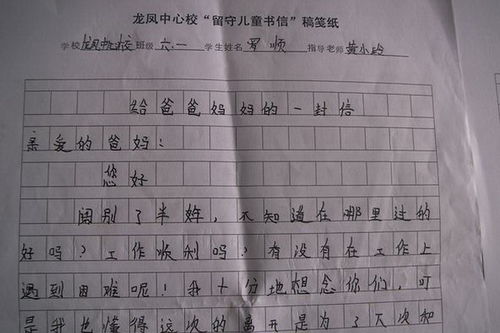 龙凤中心校“留守儿童书信”稿笺纸
学校龙凤中心校班级六.一学生姓名罗顺指导老师黄小玲
给爸爸妈妈的一封信
亲爱的爸妈：
您好
阔别了半年，不知道在哪里过的
好吗？工作顺利吗？有没有在工作上
遇到困难呢！我十分地想念你们，可
是我也懂得这次的离开是为了下次和